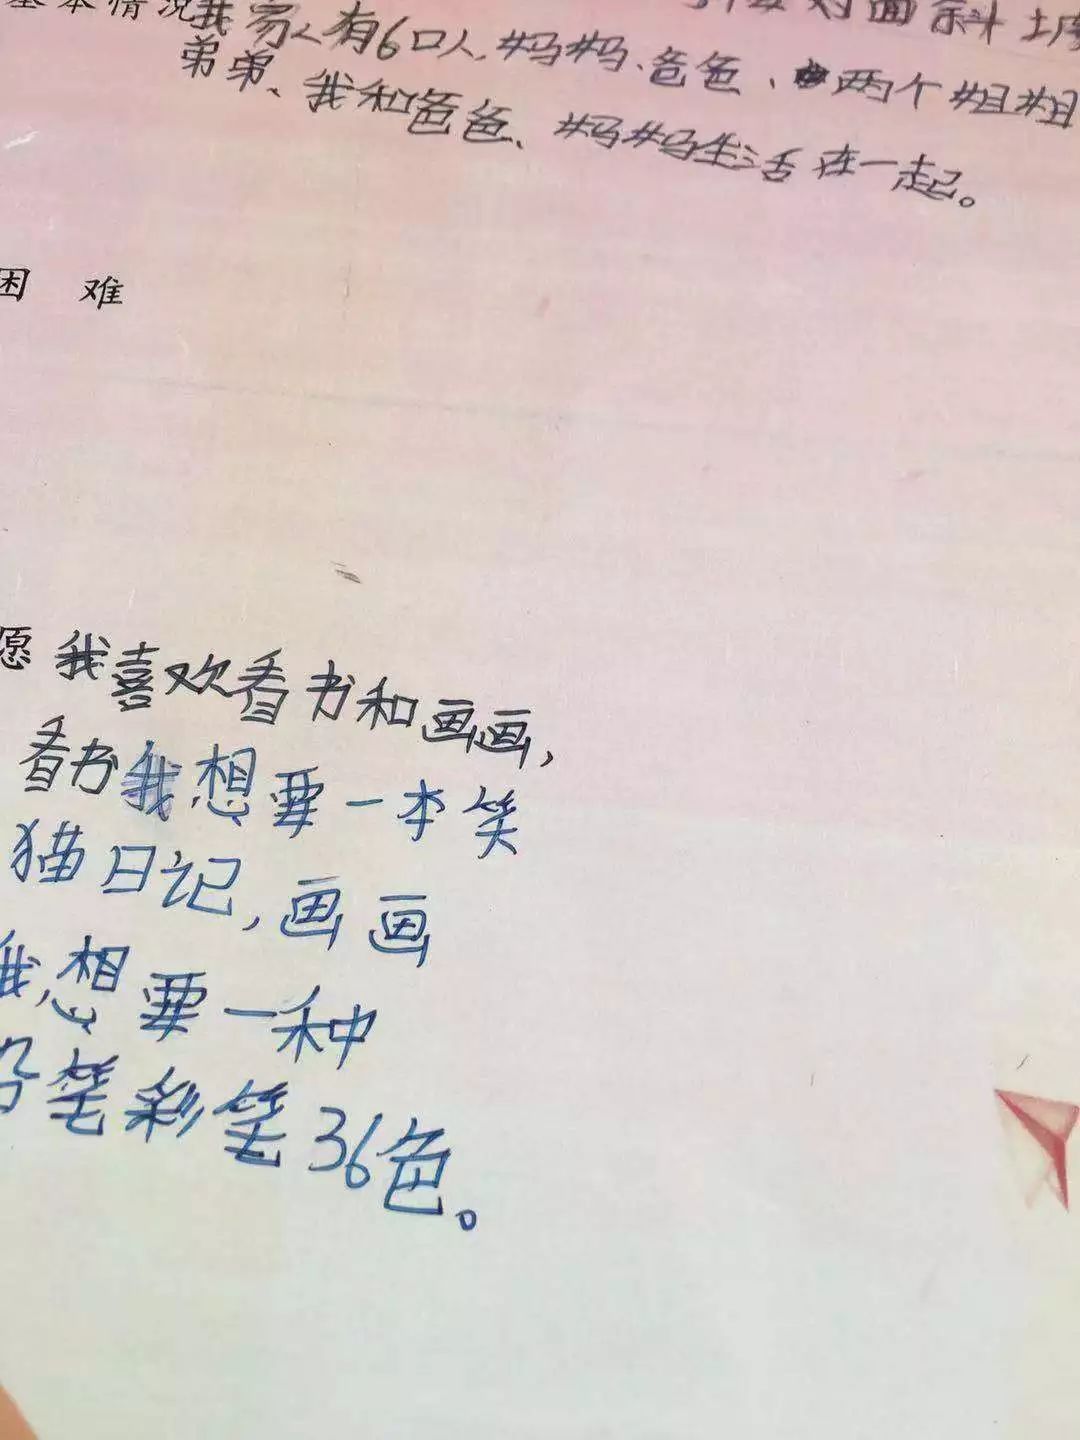 对面斜坡
基本情况我家人有6口人,妈妈、爸爸、两个姐姐
弟弟、我和爸爸、妈妈生活在一起。
困 难
愿 我喜欢看书和画画,
看书我想要一本笑
猫日记,画画
我想要一种
铅笔彩笔36色。